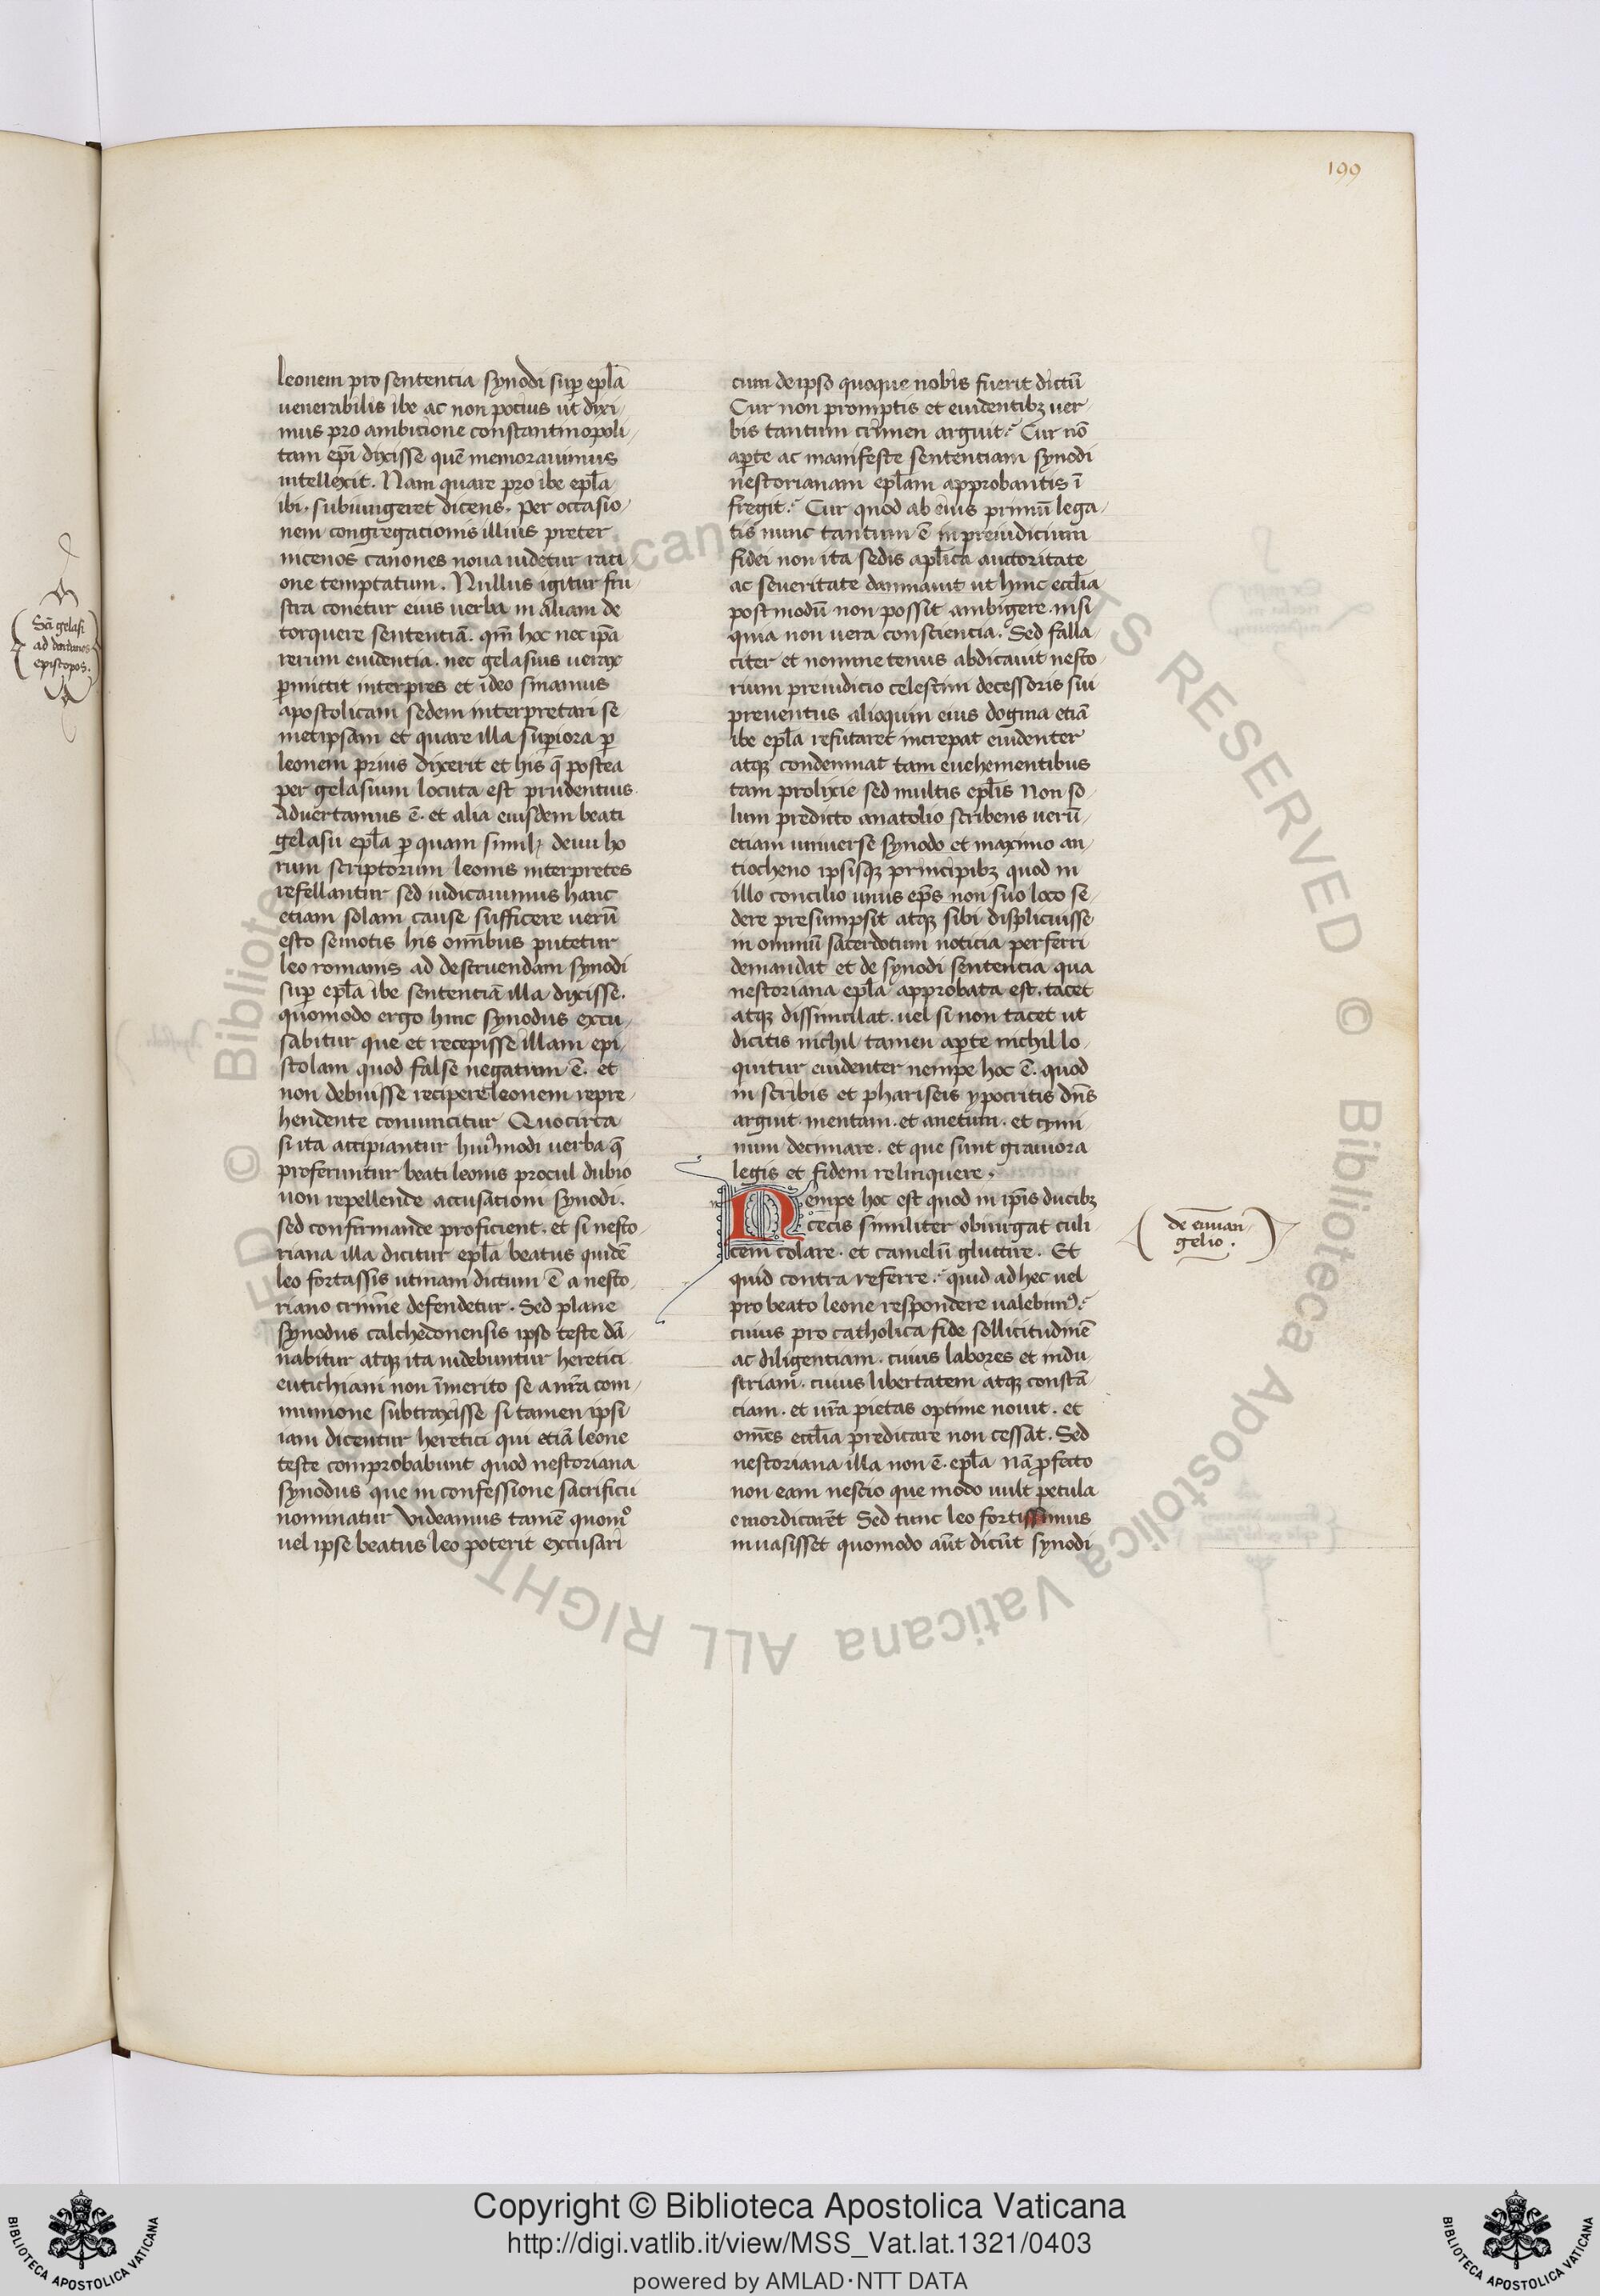 199
Sčī gelasi
ad dardanos
episcopos.
leonem pro sententia synodi sup̄ ep̄la
uenerabilis ibe ac non pocius ut dixi
mus pro ambicione constantinopoli
tam ep̄i dixisse quē memorauimus
intellexit. Nam quare pro ibe ep̄la
ibi. subiungeret dicens. Per occasio
nem congregacionis illius preter
nicenos canones noua uidetur rati
one temptatum. Nullus igitur fru
stra conetur eius uerba in aliam de
torquere sententiā. qm̄ hoc nec ip̄a
rerum euidentia. nec gelasius uerax
p̄mittit interpres et ideo sinamus
apostolicam sedem interpretari se
metipsam et quare illa sup̄iora p̄
leonem prius dixerit et his q̄ postea
per gelasium locuta est prudentius
Aduertamus ē. et alia eiusdem beati
gelasii ep̄la p̄ quam simil; deuii ho
rum scriptorum leonis interpretes
refellantur sed iudicauimus hanc
etiam solam cause sufficere uerū
esto semotis his omībus putetur
leo romanis ad destruendam synodi
sup̄ ep̄la ibe sententiā illa dixisse.
quomodo ergo hinc synodus excu
sabitur que et recepisse illam epi
stolam quod false negatum ē. et
non debuisse recipere leonem repre
hendente conuincitur Quocirca
si ita accipiantur huiꝰmodi uerba q̄
proferuntur beati leonis procul dubio
non repellende accusationi synodi.
sed confirmande proficient. et si nesto
riana illa dicitur ep̄la beatus quidē
leo fortassis utinam dictum ē a nesto
riano crimīe defendetur. Sed plane
synodus calchedonensis ipso teste dā
nabitur atqꝫ ita uidebuntur heretici
eutichiani non īmerito se a nr̄a com
munione subtraxisse si tamen ipsi
iam dicentur heretici qui etiā leone
teste comprobabunt quod nestoriana
synodus que in confessione sacrificii
nominatur Videamus tamē quomo
uel ipse beatus leo poterit excusari
cum de ipso quoque nobis fuerit dictū
Cur non promptis et euidentibꝫ uer
bis tantum crimen arguit? Cur nō
ap̄te ac manifeste sententiam synodi
nestorianam ep̄lam approbantis ī
fregit? Cur quod ab eius primū lega
tis nunc tantum ē in preiudicium
fidei non ita sedis ap̄lica auctoritate
ac seueritate damnauit ut hinc eccl̄ia
postmodū non possit ambigere. nisi
quia non uera consciencia. Sed falla
citer et nomine tenus abdicauit nesto
rium preiudicio celestini decessoris sui
preuentus alioquin eius dogma etiā
ibe ep̄la refutaret increpat euidenter
atqꝫ condemnat tam euehementibus
tam prolixie sed multis ep̄lis Non so
lum predicto anatolio scribens uerū
etiam uniuerse synodo et maximo an
tiocheno ipsisqꝫ principibꝫ quod in
illo concilio unus ep̄s non suo loco se
dere presumpsit atqꝫ sibi displicuisse
in omniū sacerdotum noticia perferri
demandat et de synodi sentencia qua
nestoriana ep̄la approbata est. tacet
atqꝫ dissimulat. uel si non tacet ut
dicitis nichil tamen ap̄te nichil lo
quitur euidenter nempe hoc ē. quod
in scribis et phariseis ypocritis dn̄s
arguit. mentam. et anetum. et cymi
num decimare. et que sunt grauiora
legis et fidem relinquere.
Nempe hoc est quod in ip̄is ducibꝫ
cecis similiter obiurgat culi
cem colare. et camelū gluttire. Et
quid contra referre? quid ad hec uel
pro beato leone respondere ualebimꝰ?
cuius pro catholica fide sollicitudinē
ac diligentiam. cuius labores et indu
striam. cuius libertatem atqꝫ constā
ciam. et ur̄a pietas optime nouit. et
om̄es eccl̄ia predicare non cessāt. Sed
nestoriana illa non ē. ep̄la nā profecto
non eam nescio que modo uult petula
e mordicarēt Sed tunc leo fortissimus
inuasisset quomodo aūt dicūt synodi
de euuan
gelio.
© Biblioteca Apostolica Vaticana ALL RIGHTS RESERVED
Copyright © Biblioteca Apostolica Vaticana
http://digi.vatlib.it/view/MSS_Vat.lat.1321/0403
powered by AMLAD·NTT DATA
BIBLIOTECA APOSTOLICA VATICANA
BIBLIOTECA APOSTOLICA VATICANA